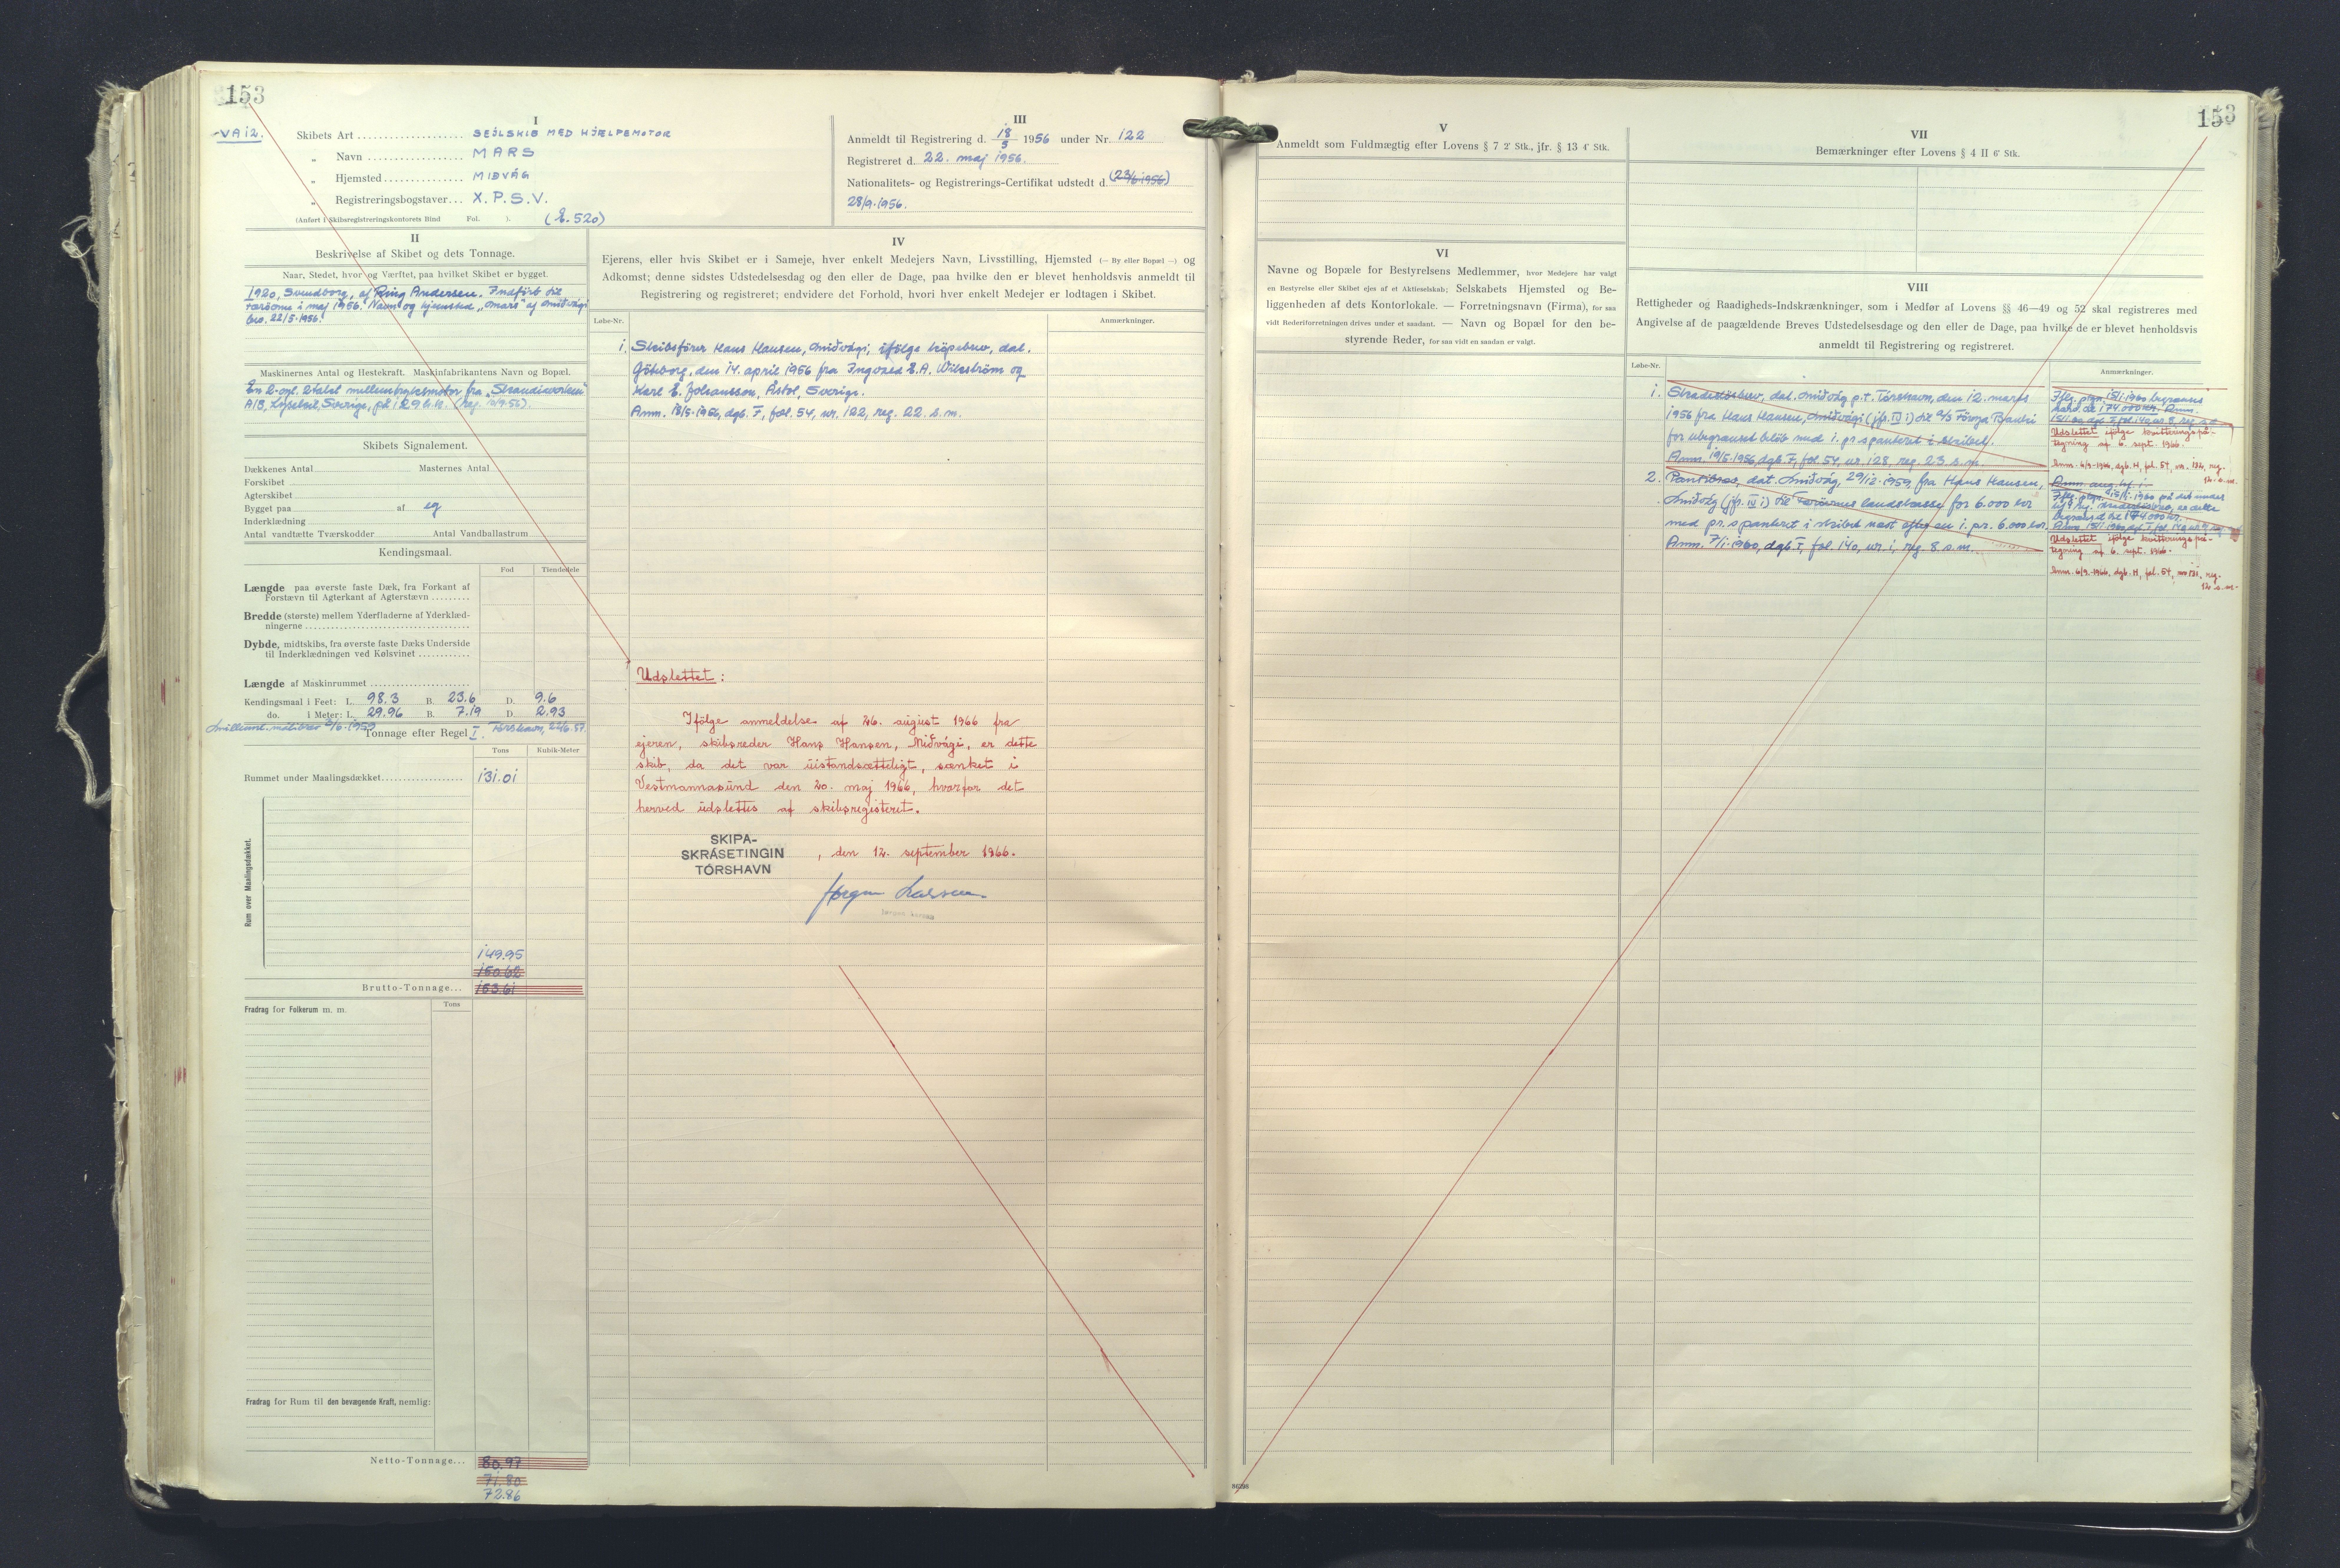 153
VA 12.
I
Skibets Art SEJLSKIB MED HJÆLPEMOTOR
„ Navn MARS
„ Hjemsted MIÐVÁG
„ Registreringsbogstaver... X.P.S.V.
(Anført i Skibsregistreringskontorets Bind Fol. ). (E.520)
III
Anmeldt til Registrering d. 18/5 1956 under Nr. 122
Registreret d. 22. maj 1956.
Nationalitets- og Registrerings-Certifikat udstedt d. (23/6 1956)
28/9.1956.
II
Beskrivelse af Skibet og dets Tonnage.
Naar, Stedet, hvor og Værftet, paa hvilket Skibet er bygget.
1920, Svendborg, af Ring Andersen. Indført til
Færöerne i maj 1956. Navn og hjemsted „Mars" af Miðvági
bev. 22/5.1956.
Maskinernes Antal og Hestekraft. Maskinfabrikantens Navn og Bopæl.
En 2-cyl. 2takt mellemtryksmotor fra „Skandiaverken"
A/B, Lysekil, Sverige, på 129 h.k.
Skibets Signalement.
Dækkenes Antal Masternes Antal
Forskibet
Agterskibet
Bygget paa af eg
Inderklædning
Antal vandtætte Tværskodder Antal Vandballastrum
Kendingsmaal.
Fod Tiendedele
Længde paa øverste faste Dæk, fra Forkant af
Forstævn til Agterkant af Agterstævn
Bredde (største) mellem Yderfladerne af Yderklæd-
ningerne
Dybde, midtskibs, fra øverste faste Dæks Underside
til Inderklædningen ved Kølsvinet
Længde af Maskinrummet
Kendingsmaal i Feet: L. 98.3 B. 23.6 D. 9.6
do. i Meter: L. 29.96 B. 7.19 D. 2.93
Tonnage efter Regel I. Tórshavn,
Tons Kubik-Meter
Rummet under Maalingsdækket 131.01
Rum over Maalingsdækket.
149.95
150.62
Brutto-Tonnage... 153.61
Tons
Fradrag for Folkerum m. m.
Fradrag for Rum til den bevægende Kraft, nemlig:
Netto-Tonnage... 80.97
71.80
72.86
IV
Ejerens, eller hvis Skibet er i Sameje, hver enkelt Medejers Navn, Livsstilling, Hjemsted (— By eller Bopæl —) og
Adkomst; denne sidstes Udstedelsesdag og den eller de Dage, paa hvilke den er blevet henholdsvis anmeldt til
Registrering og registreret; endvidere det Forhold, hvori hver enkelt Medejer er lodtagen i Skibet.
Løbe-Nr. Anmærkninger.
1. Skibsförer Hans Hansen, Miðvági, ifölge köpebrev, dat.
Göteborg, den 14. april 1956 fra Ingvald E.A. Wikström og
Karl E. Johansson, Åstol, Sverige.
Anm. 18/5.1956, dgb. F, fol. 54, nr. 122, reg. 22. s.m.
Udslettet:
Ifölge anmeldelse af 26. august 1966 fra
ejeren, skibsreder Hans Hansen, Miðvági, er dette
skib, da det var uistandsætteligt, sænket i
Vestmannasund den 20. maj 1966, hvorfor det
herved udslettes af skibsregisteret.
SKIPA-
SKRÁSETINGIN
TÓRSHAVN
, den 12. september 1966.
Jørgen Larsen
153
V
Anmeldt som Fuldmægtig efter Lovens § 7 2' Stk., jfr. § 13 4' Stk.
VI
Navne og Bopæle for Bestyrelsens Medlemmer, hvor Medejere har valgt
en Bestyrelse eller Skibet ejes af et Aktieselskab; Selskabets Hjemsted og Be-
liggenheden af dets Kontorlokale. — Forretningsnavn (Firma), for saa
vidt Rederiforretningen drives under et saadant. — Navn og Bopæl for den be-
styrende Reder, for saa vidt en saadan er valgt.
VII
Bemærkninger efter Lovens § 4 II 6' Stk.
VIII
Rettigheder og Raadigheds-Indskrænkninger, som i Medfør af Lovens §§ 46—49 og 52 skal registreres med
Angivelse af de paagældende Breves Udstedelsesdage og den eller de Dage, paa hvilke de er blevet henholdsvis
anmeldt til Registrering og registreret.
Løbe-Nr. Anmærkninger.
1. Skadesløsbrev, dat. Miðvág p.t. Tórshavn, den 12. marts
1956 fra Hans Hansen, Miðvági (jfr. IV 1) til A/S Föroya Banki
for ubegrænset beløb med 1. pr. s panteret i skibet.
Anm. 19/5.1956, dgb. F, fol. 54, nr. 128, reg. 23. s.m.
Udslettet ifölge kvitteringspå-
tegning af 6. sept. 1966.
Anm. 6/9-1966, dgb. H, fol. 54, nr. 132, reg.
12. s.m.
2. Pantebrev, dat. Miðvág, 29/12.1959 fra Hans Hansen,
Miðvág (jfr. IV 1) til Færöernes landskasse for 6.000 kr
med pr. s panteret i skibet næst efter en 1. pr. 6.000 kr.
Anm. 7/1.1960, dgb F, fol. 140, nr. 1, reg. 8 s.m.
Udslettet ifölge kvitteringspå-
tegning af 6. sept. 1966.
Anm. 6/9.1966, dgb. H, fol. 54, nr. 131, reg.
12. s.m.